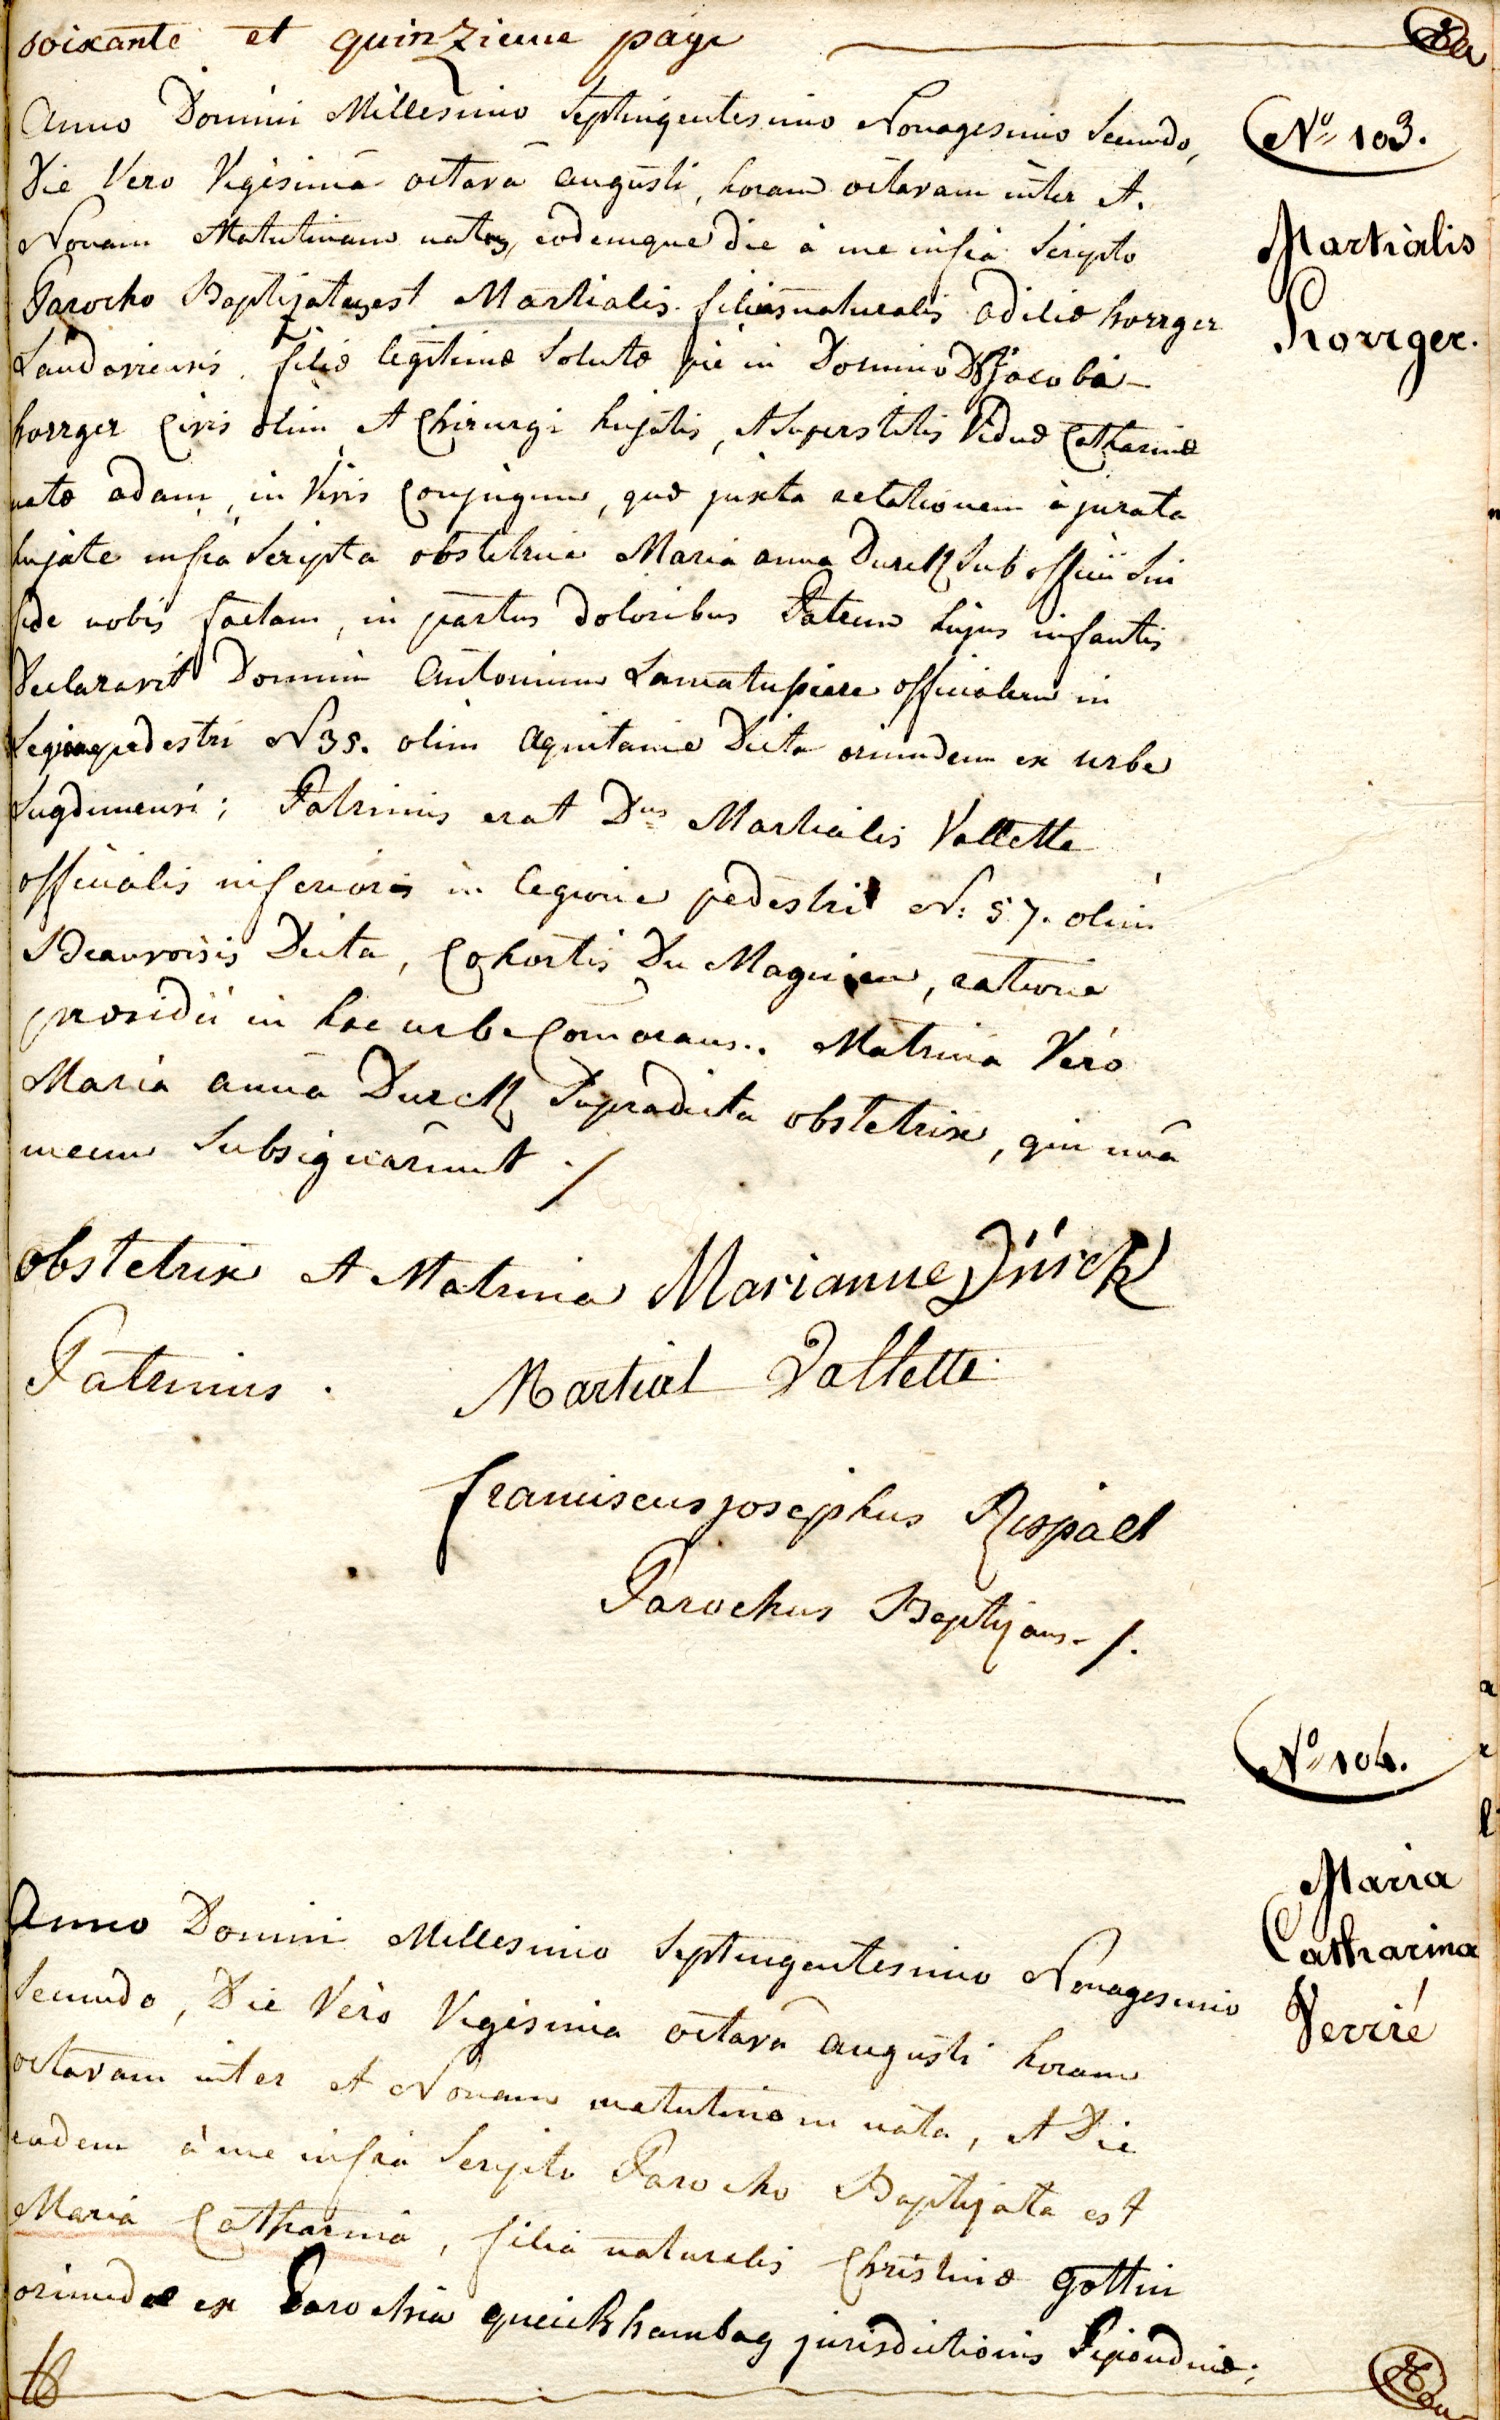 soixante et quinzieme page
Nº 103.
Martialis
Horrger.
Anno Domini Millesimo Septingentesimo Nonagesimo Secundo,
Die Vero Vigesimâ octavâ augusti, horam octavam inter et
Nonam Matutinam natus, eodemque die à me infrà Scripto
Parocho Baptizatus est Martialis filius naturalis odiliæ horrger
Landaviensis, filiæ legitimæ Solutæ piè in Domino Jacobi
horrger Civis olim et Chirurgi hujatis, et Superstitis Viduæ Catharinæ
natæ adam, in Vivis Conjugum, quæ juxta relationem à jurata
hujate infrà Scripta obstetrice Maria anna Durck Sub officii Sui
fide nobis factam, in partus doloribus Patrem hujus infantis
Declaravit Dominum Antonium officialem in
Legione pedestri N 35. olim Aquitanie Dicta oriundum ex urbe
Lugdunensi; Patrinus erat Dnus Martialis Vallette
officialis inferioris in legione pedestri N: 57. olim
Beauvoisis Dicta, Cohortis Du Magnien, ratione
præsidii in hac urbe Com̄orans.. Matrina Verò
Maria anna Durck Supradicta obstetrix, qui unà
mecum Subsignârunt ./
obstetrix et Matrina Marianne Dürck
Patrinus. Martial Vallette
franciscus josephus Rispael
Parochus Baptizans ./.
Nº 104.
Maria
Catharina
Verrié
Anno Domini Millesimo Septingentesimo Nonagesimo
Secundo, Die Verò Vigesima octava augusti horam
octavam inter et Nonam matutinam nata, et Die
eadem à me infrà Scripto Parocho Baptizata est
Maria Catharina, filia naturalis Christinæ Gottin
oriundæ ex Parochia queickhambag jurisdictionis Bipondinæ;